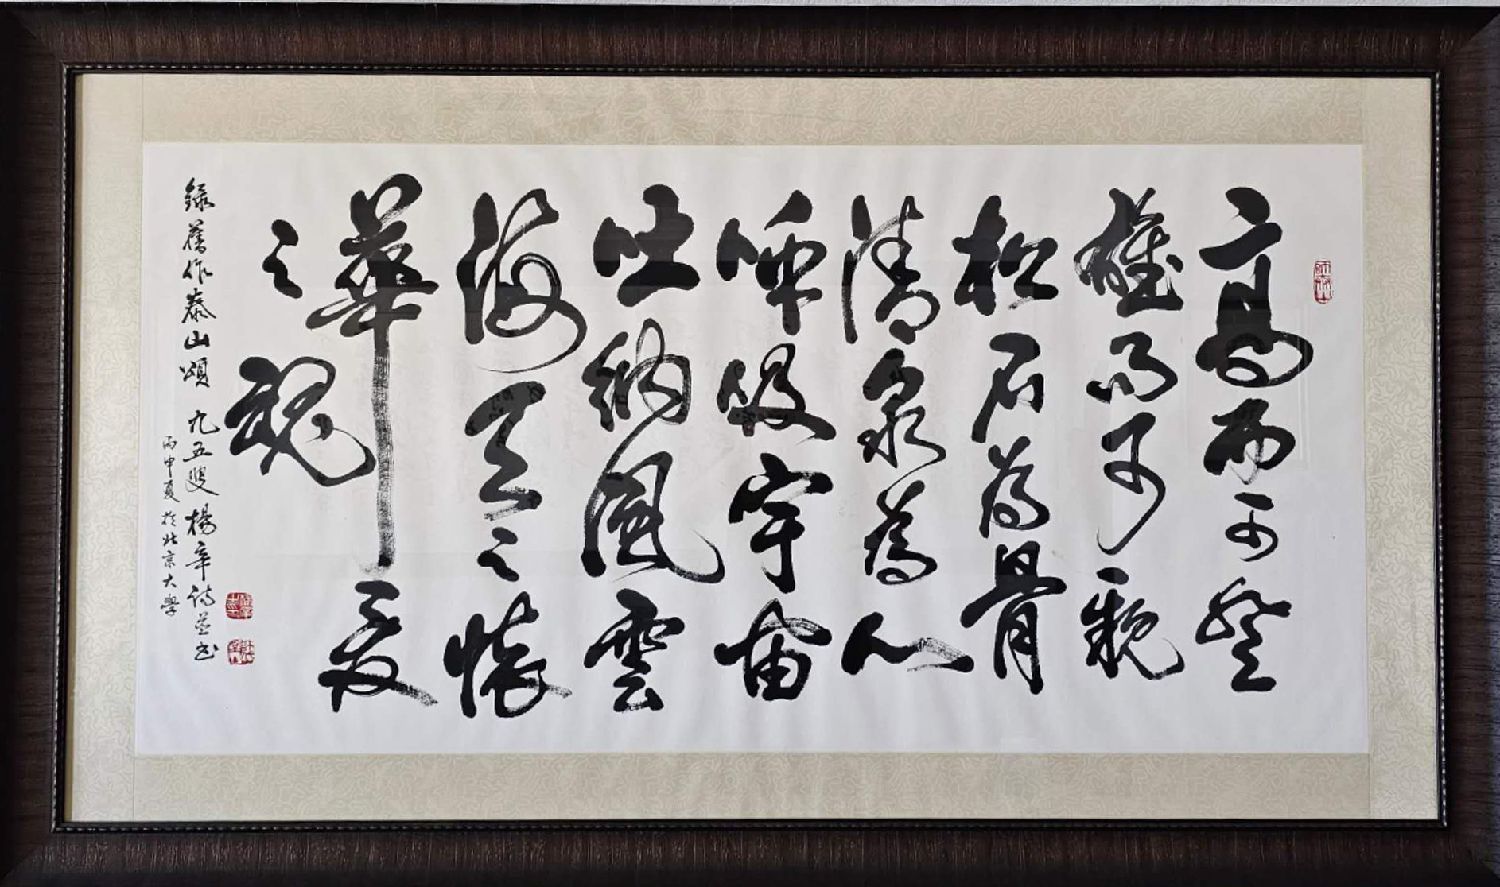 高而可登
雄而可親
松石為骨
清泉為心
呼吸宇宙
吐納風雲
海天之懷
華夏
之魂
錄舊作泰山頌 九五叟楊辛詩並書
丙申夏於北京大學